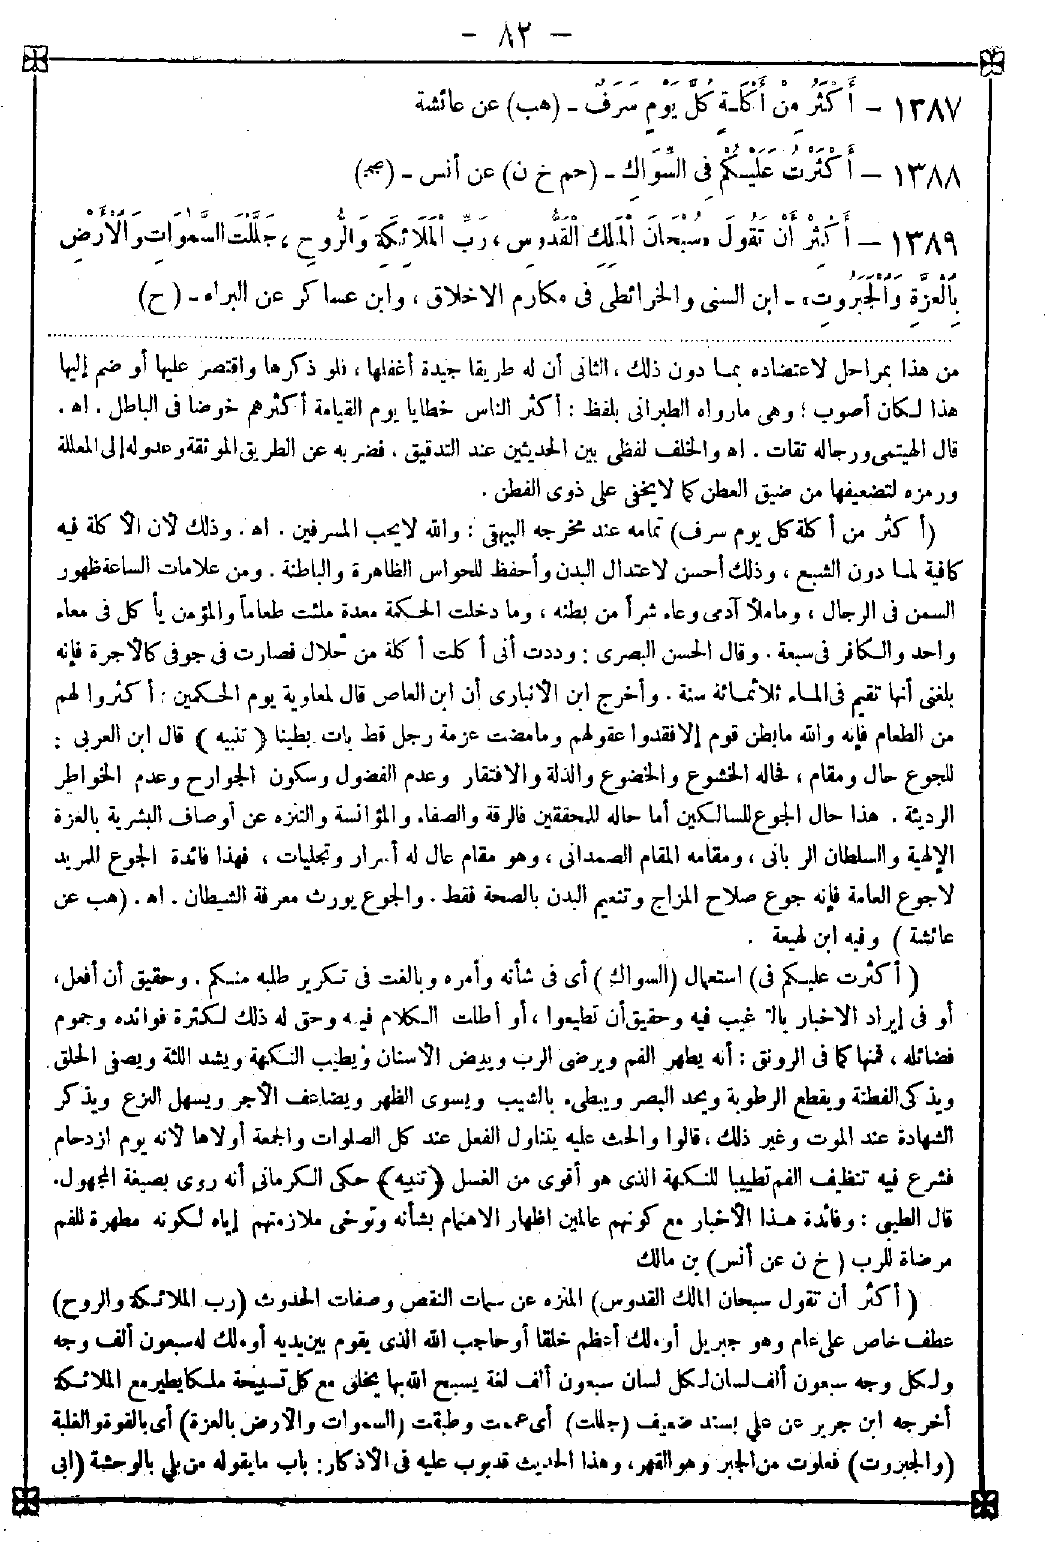 – ٨٢ –
١٣٨٧ – أَكْثَرُ مِنْ أَكْلَةٍ كُلَّ يَوْمٍ سَرَفٌ – (هب) عن عائشة
١٣٨٨ – أَكْثَرْتُ عَلَيْكُمْ فِى السِّوَاكِ – (حم خ ن) عن أنس – (صح)
١٣٨٩ – أَكْثِرْ أَنْ تَقُولَ «سُبْحَانَ الْمَلِكِ الْقُدُّوسِ، رَبِّ الْمَلَائِكَةِ وَالرُّوحِ، جَلَّلْتَ السَّمٰوَاتِ وَالْأَرْضَ
بِالْعِزَّةِ وَالْجَبَرُوتِ» – ابن السنى والخرائطى فى مكارم الاخلاق ، وابن عساكر عن البراء – (ح)
من هذا بمراحل لاعتضاده بمـا دون ذلك ، الثانى أن له طريقا جيدة أغفلها ، فلو ذكرها واقتصر عليها أو ضم إليها
هذا لـكان أصوب ؛ وهى مارواه الطبرانى بلفظ : أكثر الناس خطايا يوم القيامة أكثرهم خوضا فى الباطل . اه .
قال الهيتمى ورجاله ثقات . اه والخلف لفظى بين الحديثين عند التدقيق ، فضربه عن الطريق الموثقة وعدوله إلى المعللة
ورمزه لتضعيفها من ضيق العطن كما لايخفى على ذوى الفطن .
(أكثر من أكلة كل يوم سرف) تمامه عند مخرجه البيهقى : والله لايحب المسرفين . اه . وذلك لأن الأكلة فيه
كافية لما دون الشبع ، وذلك أحسن لاعتدال البدن وأحفظ للحواس الظاهرة والباطنة . ومن علامات الساعة ظهور
السمن فى الرجال ، وماملأ آدمى وعاء شراً من بطنه ، وما دخلت الحكمة معدة ملئت طعاماً والمؤمن يأكل فى معاء
واحد والـكافر فى سبعة . وقال الحسن البصرى : وددت أنى أكلت أكلة من حلال فصارت فى جوفى كالأجرة فإنه
بلغنى أنها تقيم فى المـاء ثلاثمـائة سنة . وأخرج ابن الأنبارى أن ابن العاص قال لمعاوية يوم الحـكمين : أكثروا لهم
من الطعام فإنه والله مابطن قوم إلا فقدوا عقولهم ومامضت عزمة رجل قط بات بطينا (تنبيه) قال ابن العربى :
للجوع حال ومقام ، فحاله الخشوع والخضوع والذلة والافتقار وعدم الفضول وسكون الجوارح وعدم الخواطر
الرديئة . هذا حال الجوع للسالـكين أما حاله للمحققين فالرقة والصفاء والمؤانسة والتنزه عن أوصاف البشرية بالعزة
الإلهية والسلطان الربانى ، ومقامه المقام الصمدانى ، وهو مقام عال له أسرار وتجليات ، فهذا فائدة الجوع للمريد
لاجوع العامة فإنه جوع صلاح المزاج وتنعيم البدن بالصحة فقط . والجوع يورث معرفة الشيطان . اه . (هب عن
عائشة) وفيه ابن لهيعة .
(أكثرت عليـكم فى) استعمال (السواك) أى فى شأنه وأمره وبالغت فى تـكرير طلبه منـكم . وحقيق أن أفعل،
أو فى إيراد الأخبار بالترغيب فيه وحقيق أن تطيعوا ، أو أطلت الـكلام فيـه وحق له ذلك لـكثرة فوائده وجموم
فضائله ، فمنها كما فى الرونق : أنه يطهر الفم ويرضى الرب ويبيض الأسنان ويطيب النـكهة ويشد اللثة ويصفى الحلق
ويذكى الفطنة ويقطع الرطوبة ويحد البصر ويبطىء بالشيب ويسوى الظهر ويضاعف الأجر ويسهل النزع ويذكر
الشهادة عند الموت وغير ذلك ، قالوا والحث عليه يتناول الفعل عند كل الصلوات والجمعة أولاها لأنه يوم ازدحام
فشرع فيه تنظيف الفم تطييبا للنـكهة الذى هو أقوى من الغسل (تنبيه) حكى الـكرمانى أنه روى بصيغة المجهول.
قال الطيبى : وفائدة هـذا الأخبار مع كونهم عالمين اظهار الاهتمام بشأنه وتوخى ملازمتهم إياه لـكونه مطهرة للفم
مرضاة للرب (خ ن عن أنس) بن مالك
(أكثر أن تقول سبحان الملك القدوس) المنزه عن سمات النقص وصفات الحدوث (رب الملائـكة والروح)
عطف خاص على عام وهو جبريل أو ملك أعظم خلقا أو حاجب الله الذى يقوم بين يديه أو ملك له سبعون ألف وجه
ولـكل وجه سبعون ألف لسان لـكل لسان سبعون ألف لغة يسبح الله بها يخلق مع كل تسبيحة ملـكا يطير مع الملائـكة
أخرجه ابن جرير عن على بسند ضعيف (جللت) أى عممت وطبقت (السموات والأرض بالعزة) أى بالقوة والغلبة
(والجبروت) فعلوت من الجبر وهو القهر ، وهذا الحديث قد بوب عليه فى الأذكار : باب مايقوله من بلى بالوحشة (ابن